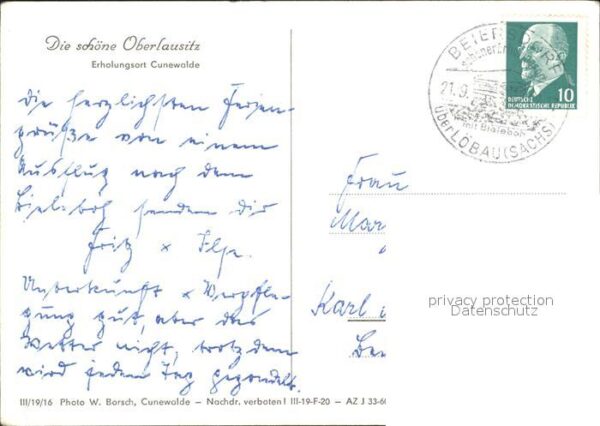 Die schöne Oberlausitz
Erholungsort Cunewalde
die herzlichsten Ferien-
grüße von einem
Ausflug nach dem
Bieleboh senden dir
Fritz + Ilse.
Unterkunft + Verpfle-
gung gut, aber das
Wetter nicht, trotzdem
wird jeden Tag gegondelt.
BEIERSDORF
21.9.
mit Bieleboh
über LÖBAU (SACHS)
10
DEUTSCHE
DEMOKRATISCHE REPUBLIK
Frau
Mar
Karl
privacy protection
Datenschutz
III/19/16 Photo W. Borsch, Cunewalde – Nachdr. verboten! III-19-F-20 – AZ J 33-60